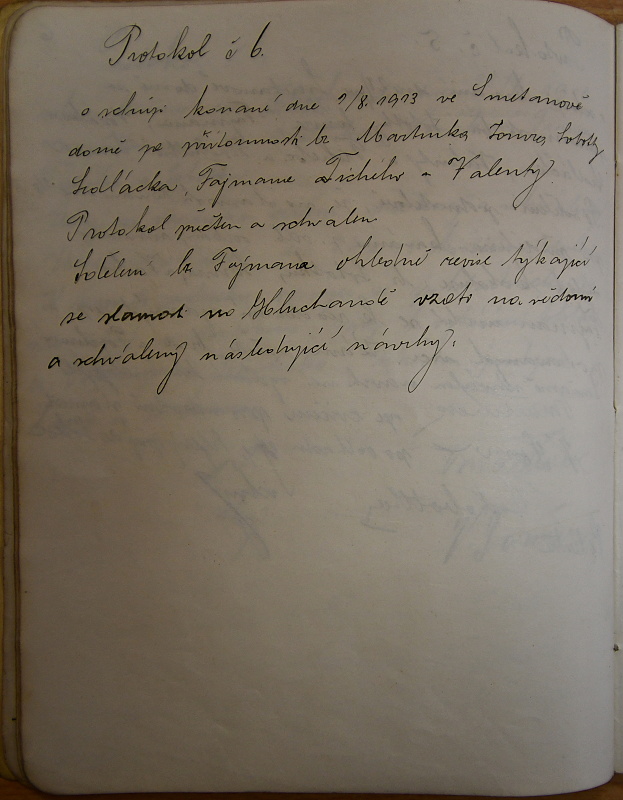 Protokol č 6.
o schůzi konané dne 9/8. 1913 ve Smetanově
domě za přítomnosti br. Martínka, Soboty
Sedláčka, Fajmana a Valenty.
Protokol přečten a schválen
Sdělení br. Fajmana ohledně revise týkající
se slavnosti na vzato na vědomí
a schváleny následující návrhy.